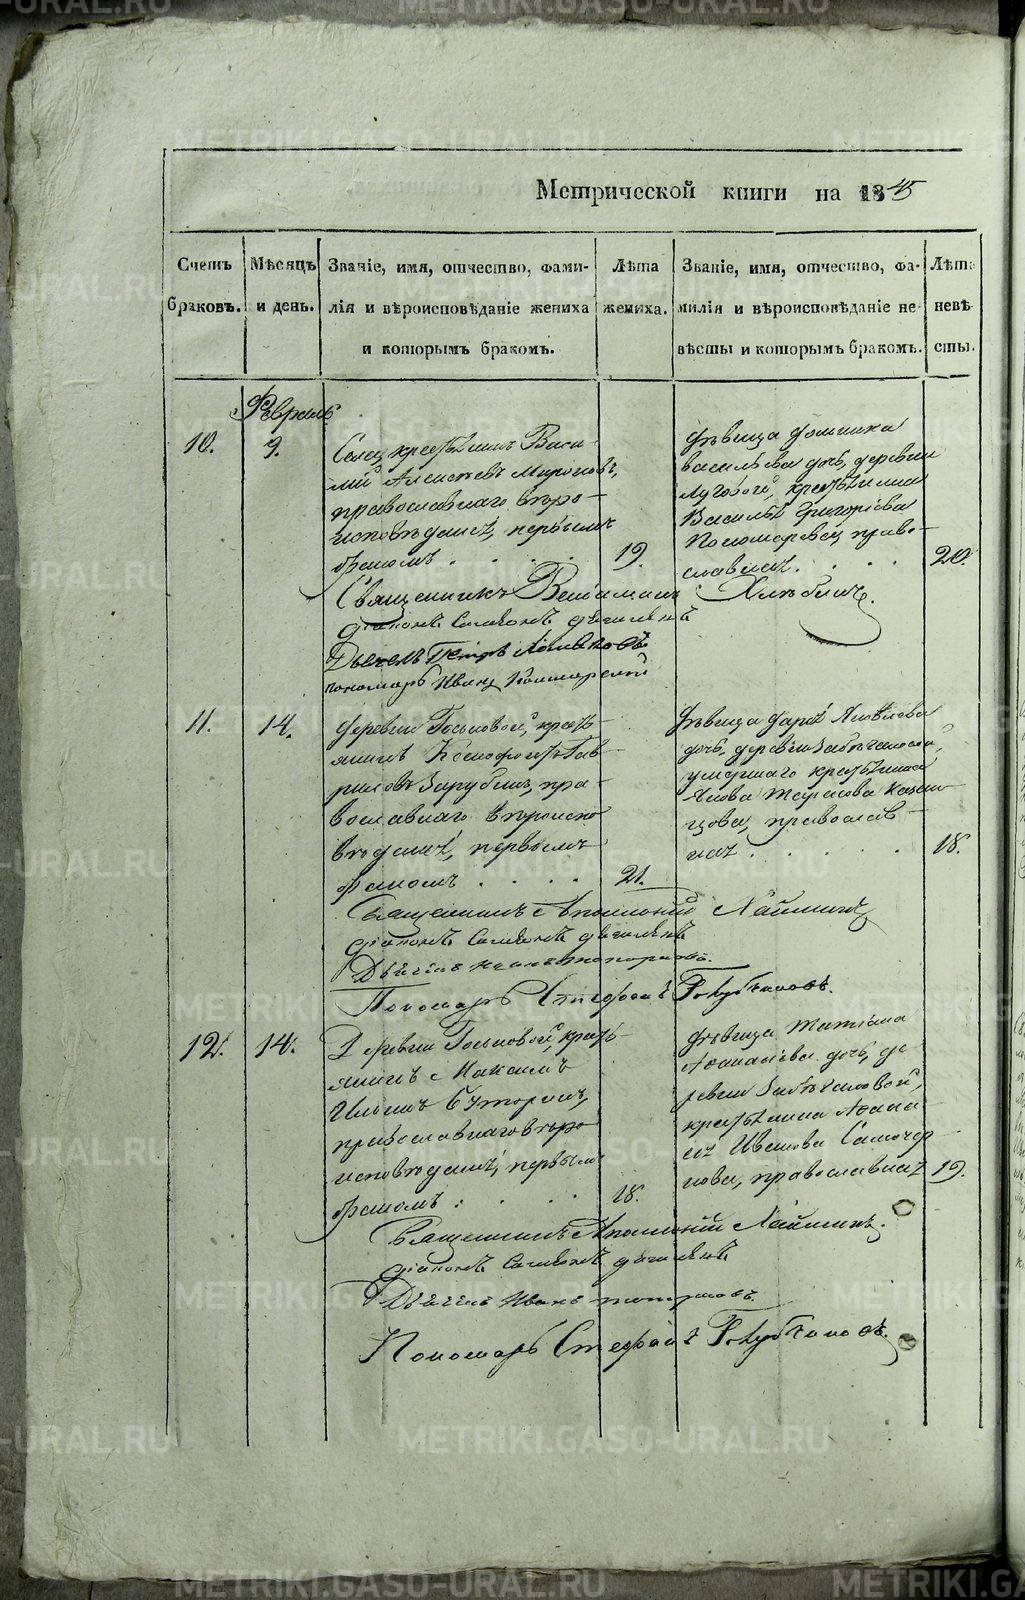 Метрической книги на 1845
Счетъ браковъ.
Мѣсяцъ и день.
Званіе, имя, отчество, фами-
лія и вѣроисповѣданіе жениха
и которымъ бракомъ.
Лѣта жениха.
Званіе, имя, отчество, фа-
милія и вѣроисповѣданіе не-
вѣсты и которымъ бракомъ.
Лѣта невѣ-
сты.
Февраль
10.
9.
крестьянинъ Васи-
лій Алексѣевъ Мироновъ,
православнаго вѣро-
исповѣданія, первымъ
бракомъ . . . .
19.
дѣвица Домника
Васильева дочь, деревни
Луговой, крестьянина
Василья Григорьева
Пономарева, право-
славная . . . .
20.
Священникъ Веніаминъ Хлѣбинъ.
Діаконъ Симеонъ
Дьячекъ Петръ
Пономарь Иванъ
11.
14.
деревни крестья-
янинъ Ксенофонтъ Гав-
риловъ Зарубинъ, пра-
вославнаго вѣроиспо-
вѣданія, первымъ
бракомъ . . . .
21.
дѣвица Дарья Яковлева
дочь, деревни
умершаго крестьянина
Якова Тарасова Казан-
цова, православ-
ная . . . .
18.
Священникъ Аполлоній
Діаконъ Симеонъ
Дьячекъ Иванъ
Пономарь Стефанъ
12.
14.
Деревни крестья-
янинъ Максимъ
Ильинъ Буторинъ,
православнаго вѣро-
исповѣданія, первымъ
бракомъ . . . .
18.
дѣвица Татіана
Аѳанасіева дочь, де-
ревни
крестьянина Аѳана-
сія Иванова Самочер-
нова, православная
19.
Священникъ Аполлоній
Діаконъ Симеонъ
Дьячекъ Иванъ
Пономарь Стефанъ
METRIKI.GASO-URAL.RU